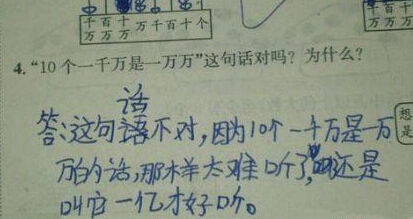 千百十万千百十个 千百十
万万万 万万万
4. “10 个一千万是一万万”这句话对吗？为什么？
话
答：这句不对，因为10个一千万是一万
万的话，那样太难听了，还是
叫它一亿才好听。
想
是